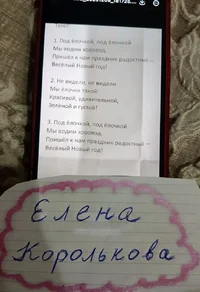 1. Под ёлочкой, под ёлочкой
Мы водим хоровод,
Пришёл к нам праздник радостный —
Весёлый Новый год!
2. Не видели, не видели
Мы ёлочки такой:
Красивой, удивительной,
Зелёной и густой!
3. Под ёлочкой, под ёлочкой
Мы водим хоровод,
Пришёл к нам праздник радостный —
Весёлый Новый год!
Елена
Королькова